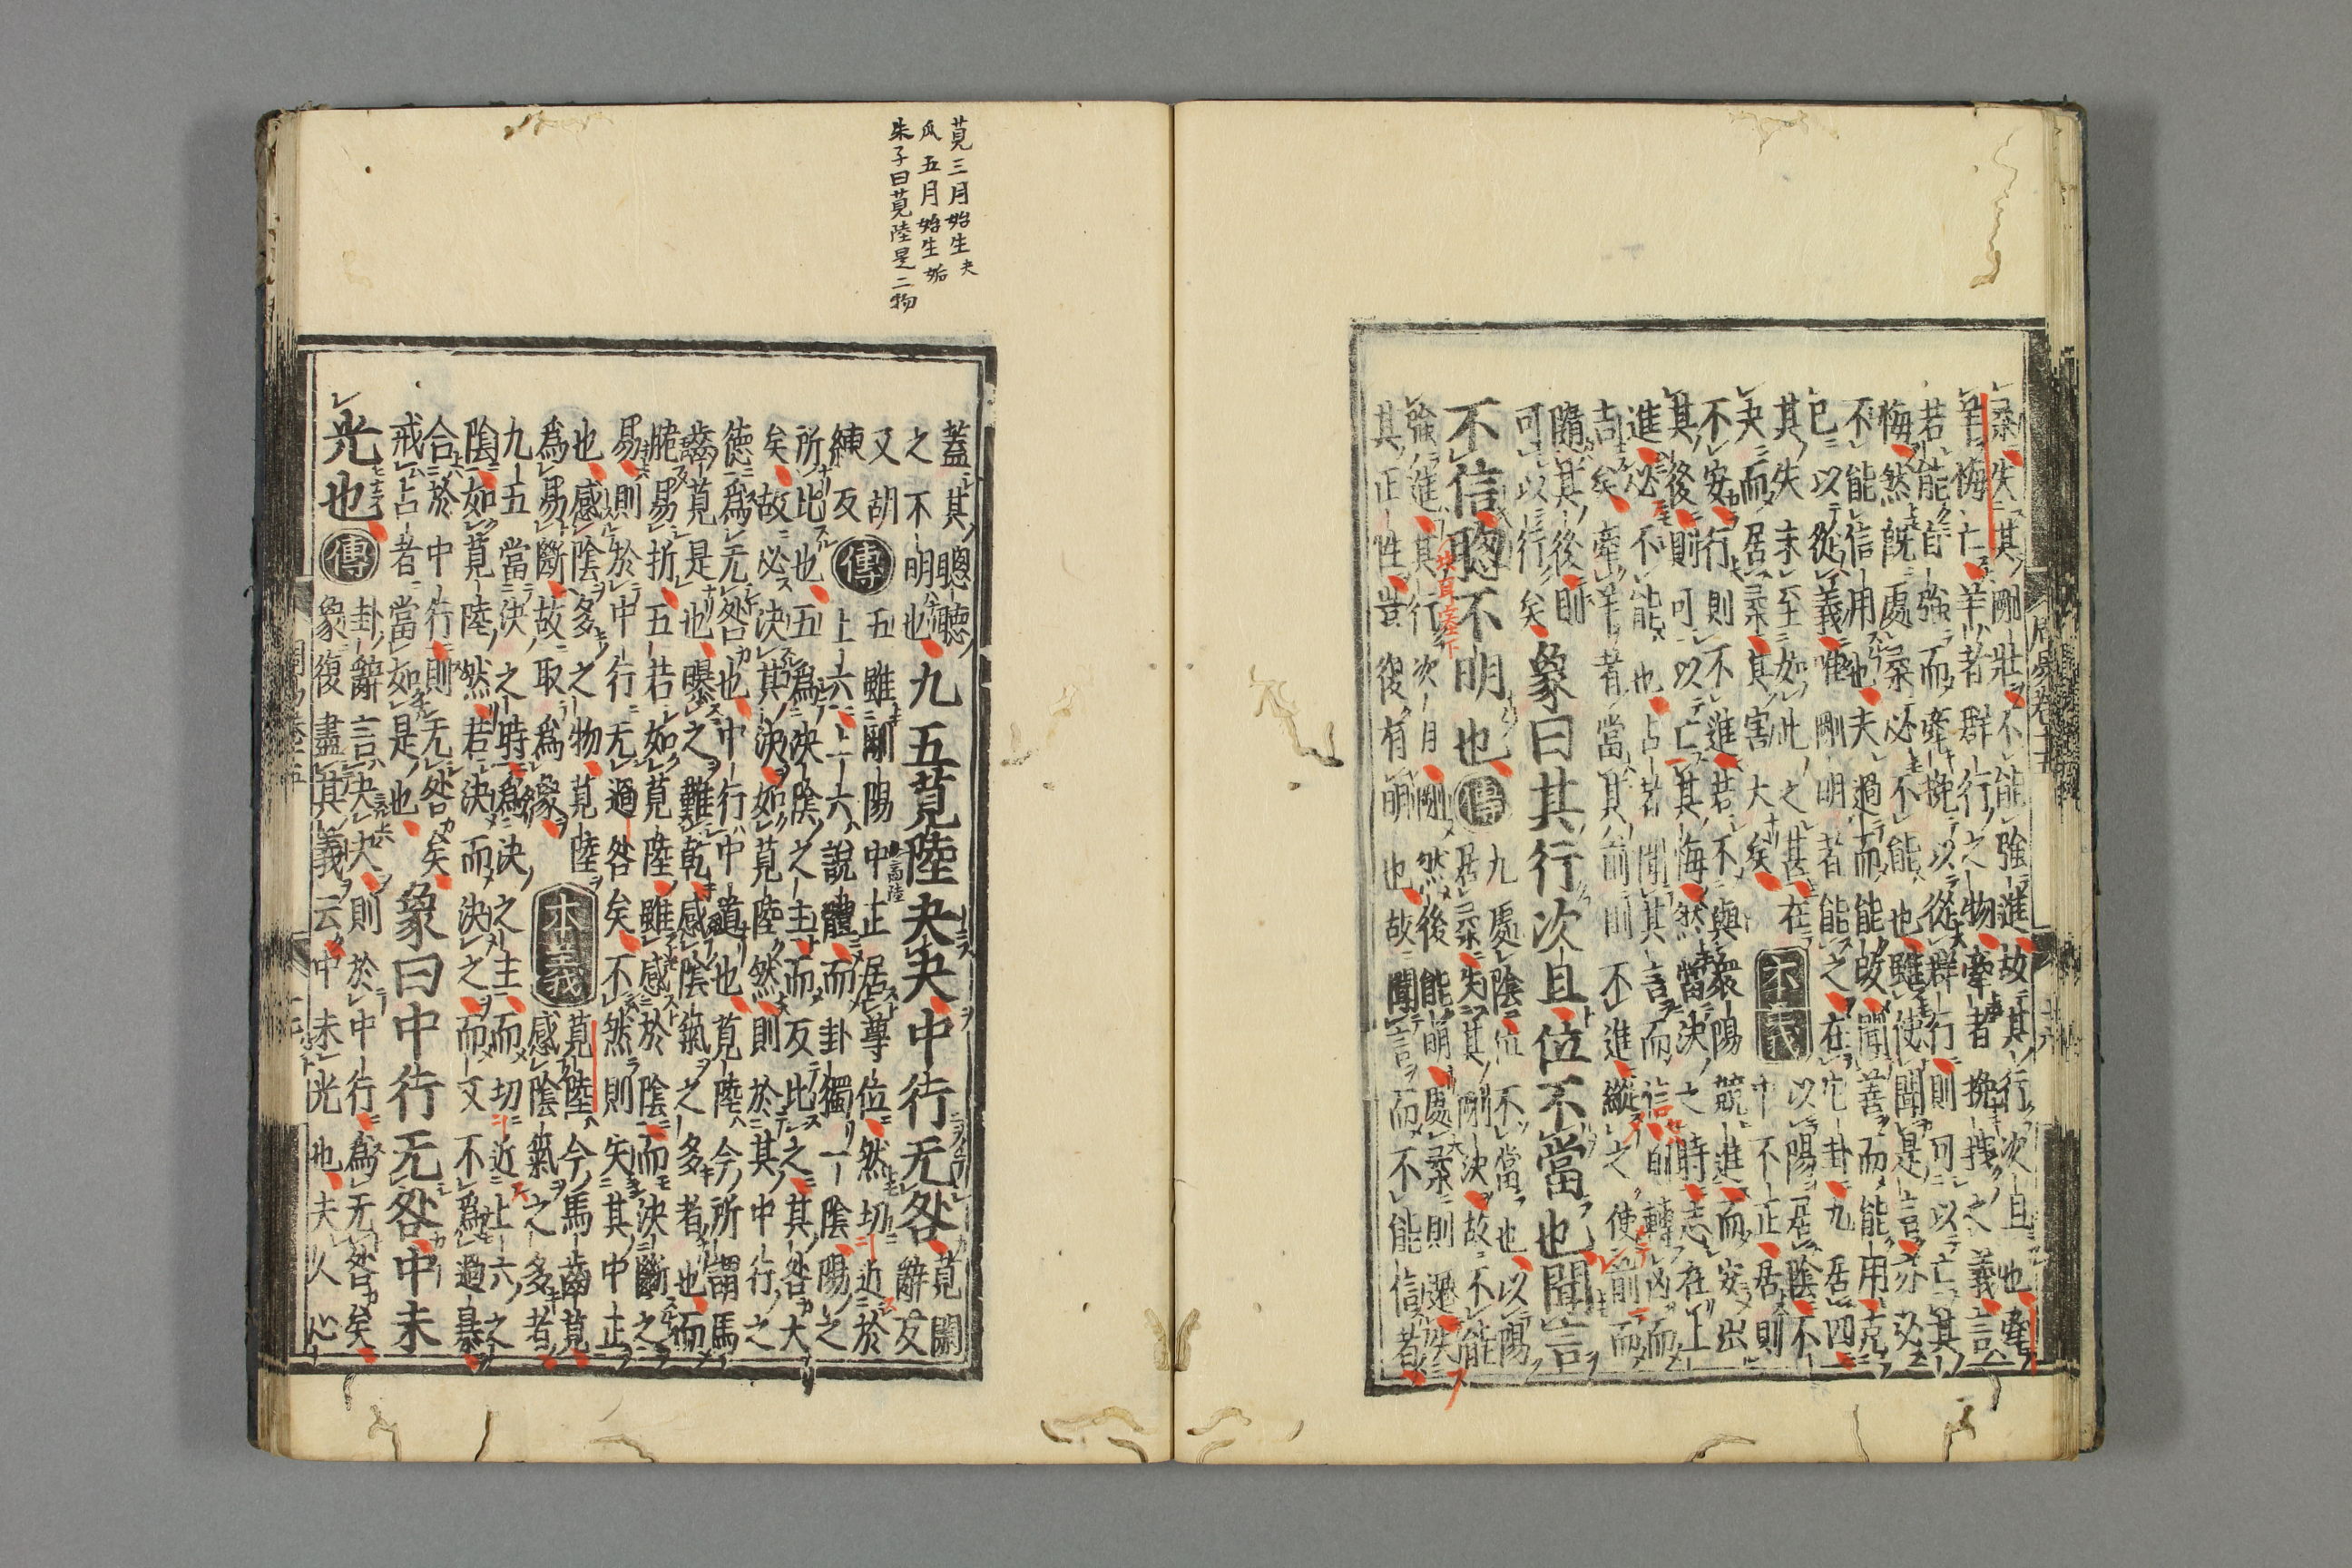 柔失其剛壯不能強進故其行次且也牽
羊悔亡羊者群行之物牽者挽拽之義言
若能自強而牽挽以從群行則可以亡其
悔然旣處柔必不能也雖使聞是言亦必
不能信用也夫過而能改聞善而能用克
已以從義唯剛明者能之在它卦九居四
其失未至如此之甚在
夬而居柔其害大矣
本義
以陽居陰不
中不正居則
不安行則不進若不與衆陽競進而安出
其後則可以亡其悔然當決之時志在上
進必不能也占者聞其言而信則轉凶而
吉矣牽羊者當其前則不進縱之使前而
隨其後則
可以行矣
象曰其行次且位不當也聞言
不信聰不明也
傳
九處陰位不當也以陽
居柔失其剛決故不能
強進其行次且剛然後能明處柔則遷失
其正性豈復有明也故聞言而不能信者
莧三月始生夬
瓜五月始生姤
朱子曰莧陸是二物
蓋其聰聽
之不明也
九五莧陸夬夬中行无咎
莧閑
辯反
又胡
練反
傳
五雖剛陽中正居尊位然切近於
上六上六說體而卦獨一陰陽之
所比也五爲決陰之主而反比之其咎大
矣故必決其決如莧陸然則於其中行之
德爲无咎也中行中道也莧陸今所謂馬
齒莧是也曝之難乾感陰氣之多者也而
脆易折五若如莧陸雖感於陰而決斷之
易則於中行无過咎矣不然則失其中正
也感陰多之物莧陸
爲易斷故取爲象
本義
莧陸今馬齒莧
感陰氣之多者
九五當決之時爲決之主而切近上六之
陰如莧陸然若決而決之而又不爲過暴
合於中行則无咎矣
戒占者當如是也
象曰中行无咎中未
光也
傳
卦辭言夬夬則於中行爲无咎矣
象復盡其義云中未光也夫人心